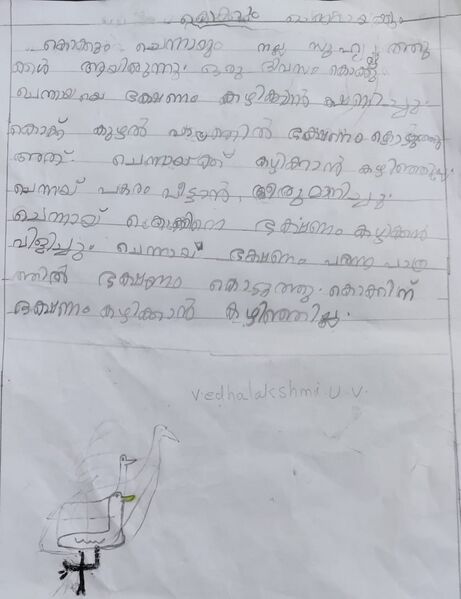 കൊക്കും ചെന്നായും
കൊക്കും ചെന്നായും നല്ല സുഹൃത്തു
ക്കൾ ആയിരുന്നു. ഒരു ദിവസം കൊക്കു
ചെന്നായയെ ഭക്ഷണം കഴിക്കാൻ ക്ഷണിച്ചു.
കൊക്ക് കുഴൽ പാത്രത്തിൽ ഭക്ഷണം കൊടുത്തു
അത് ചെന്നായക്ക് കഴിക്കാൻ കഴിഞ്ഞില്ല.
ചെന്നായ് പകരം വീട്ടാൻ തീരുമാനിച്ചു.
ചെന്നായ് കൊക്കിനെ ഭക്ഷണം കഴിക്കാൻ
വിളിച്ചു. ചെന്നായ് ഭക്ഷണം പരന്ന പാത്ര
ത്തിൽ ഭക്ഷണം കൊടുത്തു. കൊക്കിന്
ഭക്ഷണം കഴിക്കാൻ കഴിഞ്ഞില്ല.
vedhalakshmi.u.v.